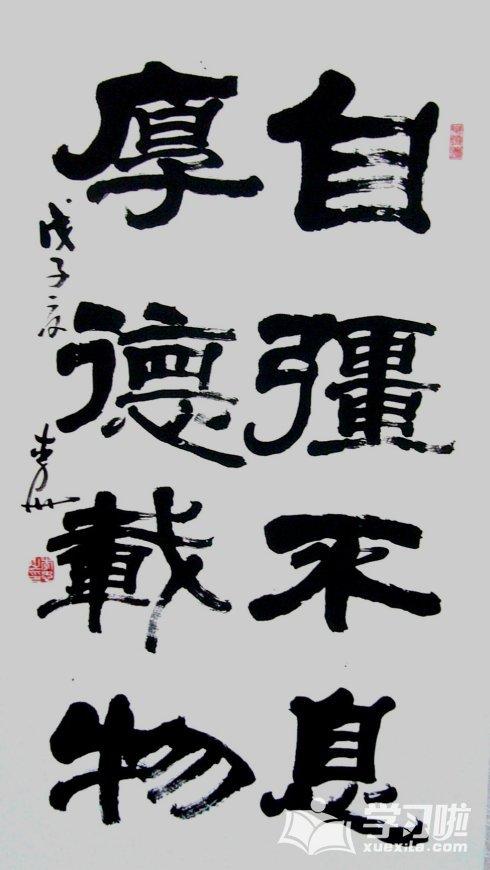 自彊不息
厚德載物
戊子夏
学习啦
xuexila.com